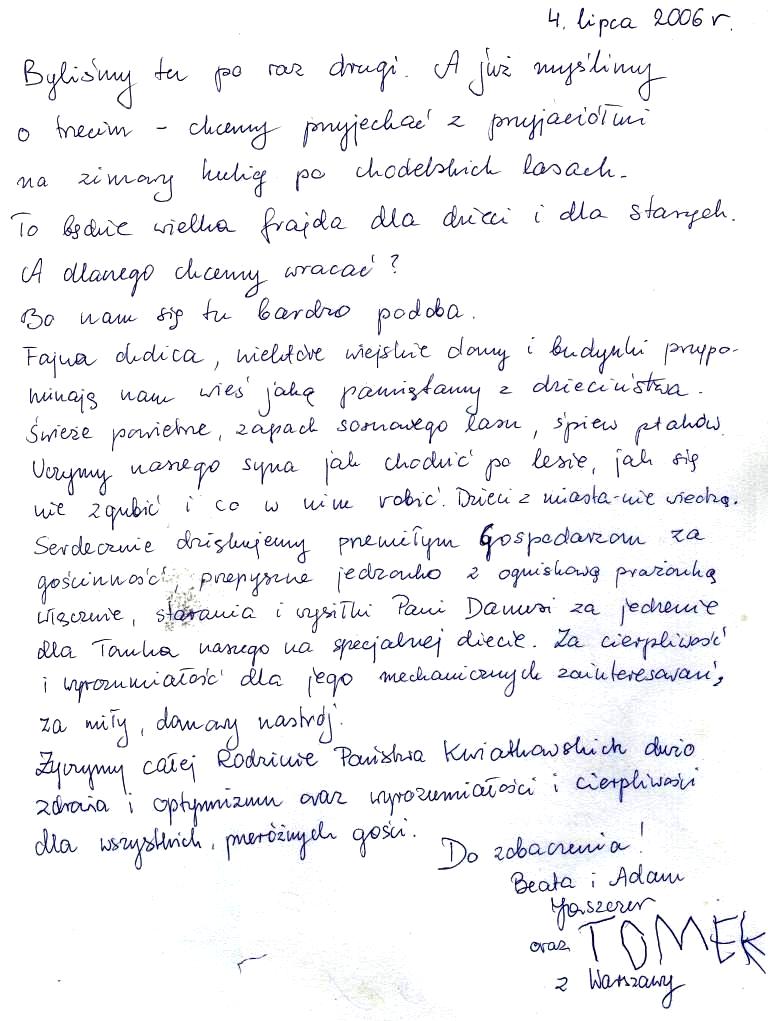 4. lipca 2006 r.
Byliśmy tu po raz drugi. A już myślimy
o trzecim - chcemy przyjechać z przyjaciółmi
na zimowy kulig po chodelskich lasach.
To będzie wielka frajda dla dzieci i dla starych.
A dlaczego chcemy wracać?
Bo nam się tu bardzo podoba.
Fajna okolica, niektóre wiejskie domy i budynki przypo-
minają nam wieś jaką pamiętamy z dzieciństwa.
Świeże powietrze, zapach sosnowego lasu, śpiew ptaków.
Uczymy naszego syna jak chodzić po lesie, jak się
nie zgubić i co w nim robić. Dzieci z miasta-nie wiedzą.
Serdecznie dziękujemy przemiłym Gospodarzom za
gościnność, przepyszne jedzonko z ogniskową prażonką
włącznie, starania i wysiłki Pani Danusi za jedzenie
dla Tomka naszego na specjalnej diecie. Za cierpliwość
i wyrozumiałość dla jego mechanicznych zainteresowań,
za miły, domowy nastrój.
Życzymy całej Rodzinie Państwa Kwiatkowskich dużo
zdrowia i optymizmu oraz wyrozumiałości i cierpliwości
dla wszystkich, przeróżnych gości.
Do zobaczenia!
Beata i Adam
oraz TOMEK
z Warszawy